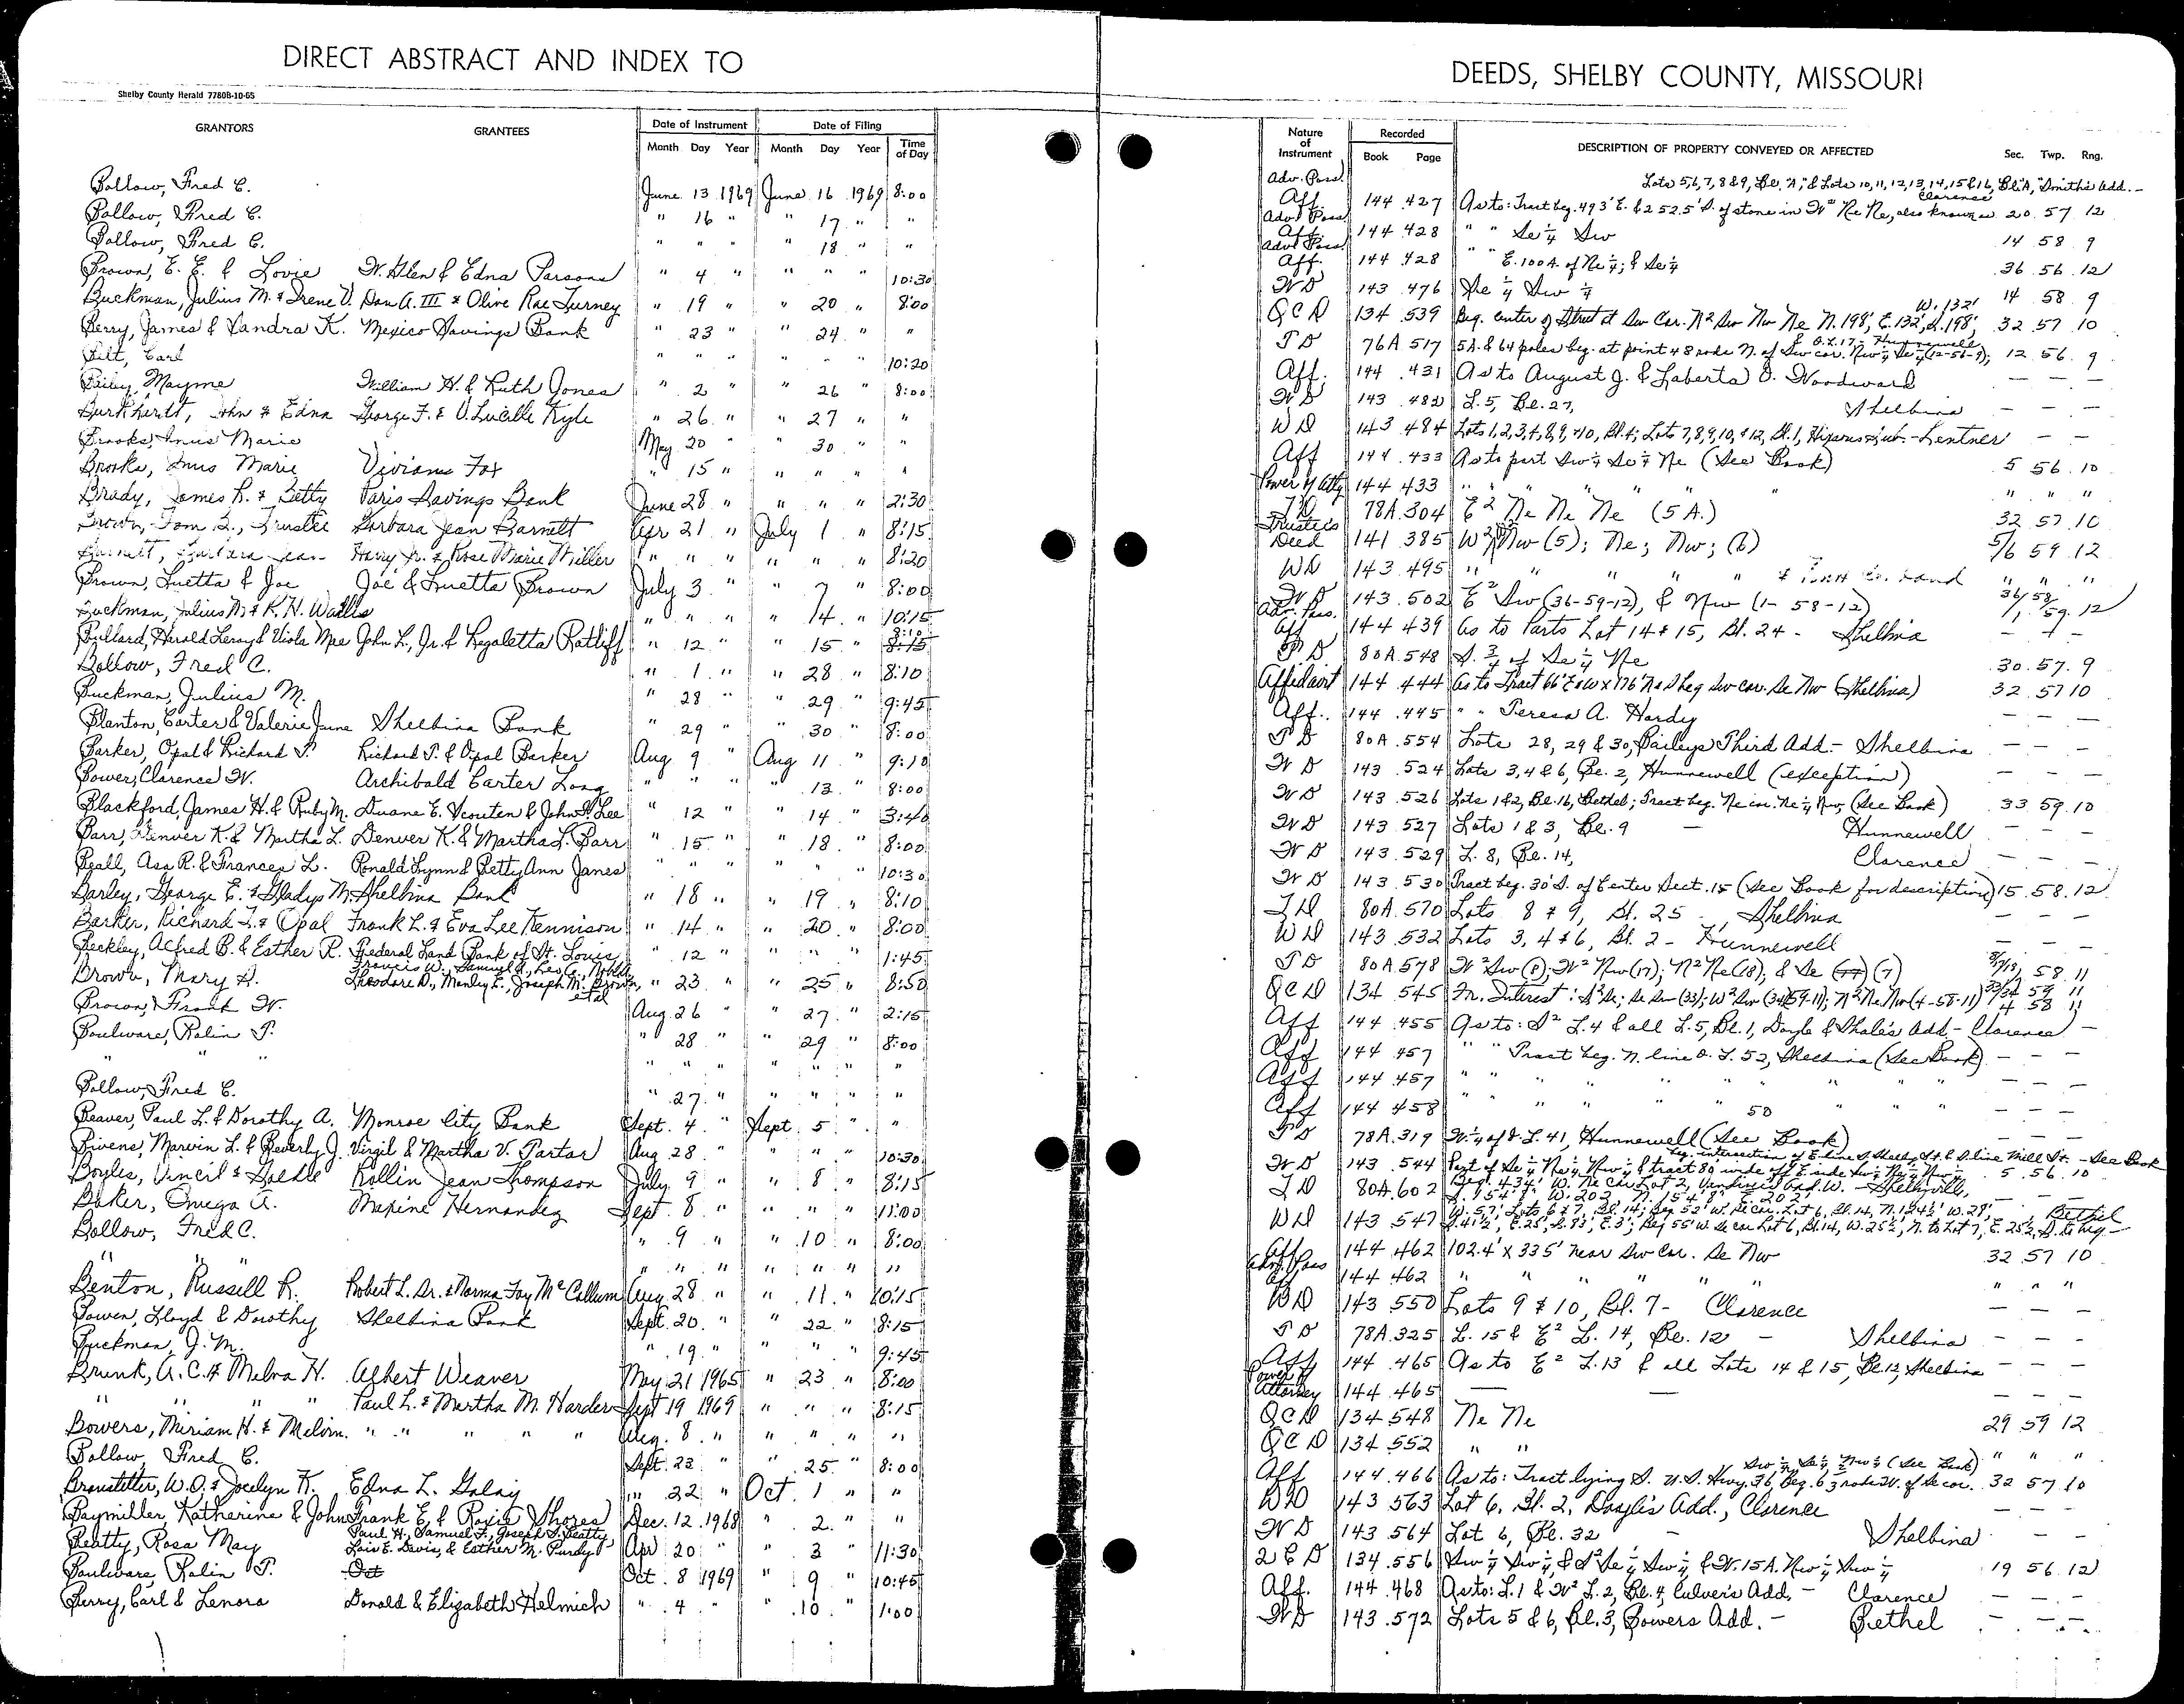 DIRECT ABSTRACT AND INDEX TO
DEEDS, SHELBY COUNTY, MISSOURI
Shelby County Herald 7780B-10-65
GRANTORS GRANTEES Date of Instrument Month Day Year Date of Filing Month Day Year Time of Day
Nature of Instrument Recorded Book Page DESCRIPTION OF PROPERTY CONVEYED OR AFFECTED Sec. Twp. Rng.
Bollow, Fred C. June 13 1969 June 16 1969 8:00
Bollow, Fred C. " 16 " " 17 " "
Bollow, Fred C. " " " " 18 " "
Brown, E. E. & Lovie W. Glen & Edna Parsons " 4 " " " " 10:30
Buckman, Julius M. & Irene V. Dan A. III & Olive Rae Turney " 19 " " 20 " 8:00
Berry, James & Sandra K. Mexico Savings Bank " 23 " " 24 " "
Bilt, Carl " " " " " " 10:20
Bailey, Mayme William H. & Ruth Jones " 2 " " 26 " 8:00
Burkhardt, John & Edna George F. & O. Lucille Kyle " 26 " " 27 " "
Brooks, Inus Marie May 20 " " 30 " "
Brooks, Inus Marie Vivian Fox " 15 " " " " "
Brady, James R. & Betty Paris Savings Bank June 28 " " " " 2:30
Brown, Tom B., Trustee Barbara Jean Barnett Apr 21 " July 1 " 8:15
Barnett, Barbara Jean Harry Jr. & Rose Marie Miller " " " " " " 8:20
Brown, Luetta & Joe Joe & Luetta Brown July 3 " " 7 " 8:00
Buckman, Julius M. & R. H. Wallis " " " " 14 " 10:15
Bullard, Harold Leroy & Viola Mae John L., Jr. & Regaletta Ratliff " 12 " " 15 " 8:15
Bollow, Fred C. " 1 " " 28 " 8:10
Buckman, Julius M. " 28 " " 29 " 9:45
Blanton, Carter & Valerie June Shelbina Bank " 29 " " 30 " 8:00
Barker, Opal & Richard T. Richard T. & Opal Barker Aug 9 " Aug 11 " 9:10
Bower, Clarence W. Archibald Carter Long " " " " 13 " 8:00
Blackford, James H. & Ruby M. Duane E. Scouten & John H. Lee " 12 " " 14 " 3:40
Barr, Denver K. & Martha L. Denver K. & Martha L. Barr " 15 " " 18 " 8:00
Beall, Asa R. & Frances L. Ronald Lynn & Betty Ann Janes " " " " " " 10:30
Barley, George E. & Gladys M. Shelbina Bank " 18 " " 19 " 8:10
Barker, Richard T. & Opal Frank L. & Eva Lee Kennison " 14 " " 20 " 8:00
Beckley, Alfred B. & Esther R. Federal Land Bank of St. Louis " 12 " " " " 1:45
Brown, Mary D. Francis W., Samuel A., Leo C., Noble, Theodore D., Manley E., Joseph M. Brown, etal " 23 " " 25 " 8:50
Brown, Frank W. Aug. 26 " " 27 " 2:15
Boulware, Rolin T. " 28 " " 29 " 8:00
" " " " " " " " " "
Bollow, Fred C. " 27 " " " " "
Beaver, Paul L. & Dorothy A. Monroe City Bank Sept. 4 " Sept. 5 " "
Bivens, Marvin L. & Beverly J. Virgil & Martha V. Parton Aug 28 " " " " 10:30
Boyles, Vincil & Goldie Rollin Jean Thompson July 9 " " 8 " 8:15
Baker, Omega A. Maxine Hernandez Sept. 8 " " " " 11:00
Bollow, Fred C. " 9 " " 10 " 8:00
" " " " " " " " "
Benton, Russell R. Robert L. Sr. & Norma Fay McCallum Aug. 28 " " 11 " 10:15
Bowen, Lloyd & Dorothy Shelbina Bank Sept. 20 " " 22 " 8:15
Buckman, J. M. " 19 " " " " 9:45
Brunk, A. C. & Melva H. Albert Weaver May 21 1965 " 23 " 8:00
" " " " Paul L. & Martha M. Harder Sept 19 1969 " " " 8:15
Bowers, Miriam H. & Melvin " " " " " Aug. 8 " " " " "
Bollow, Fred C. Sept. 23 " " 25 " 8:00
Branstetter, W. O. & Jocelyn K. Edna L. Galay " 22 " Oct. 1 " "
Baymiller, Katherine & John Frank E. & Roxie Shores Dec. 12 1968 " 2 " "
Beatty, Rosa May Paul H., Samuel F., Joseph S. Beatty Lois E. Davis, & Esther M. Purdy Apr 20 " " 3 " 11:30
Boulware, Rolin T. Oct Oct. 8 1969 " 9 " 10:45
Berry, Carl & Lenora Donald & Elizabeth Helmich " 4 " " 10 " 1:00
Adv. Poss. Aff. 144 427 Lots 5,6,7,8 & 9, Bl. "A," & Lots 10,11,12,13,14,15 & 16, Bl. "A," Smith's Add. - Clarence
As to: Tract beg. 493' E. & 252.5' S. of stone in W² Ne Ne, also known as 20 57 12
Adv. Poss. Aff. 144 428 " " Se ¼ Sw 14 58 9
Adv. Poss. Aff. 144 428 " " E. 100 A. of Ne ¼; & Se ¼ 36 56 12
W D 143 476 Se ¼ Sw ¼ 14 58 9
Q C D 134 539 Beg. center of Street at Sw Cor. N² Sw Nw Ne N. 198', E. 132', S. 198', W. 132' 32 57 10
T D 76A 517 5A. & 64 poles beg. at point 48 rods N. of Sw cor. Nw ¼ Se ¼ (12-56-9); & O.L. 17 - Hunnewell 12 56 9
Aff. 144 431 As to August J. & Laberta O. Woodward - - -
W D 143 482 L. 5, Bl. 27, Shelbina - - -
W D 143 484 Lots 1,2,3,4,8,9, & 10, Bl. 4; Lots 7,8,9,10, & 12, Bl. 1, Sub. - Lentner - -
Aff 144 433 As to part Sw ¼ Se ¼ Ne (See Book) 5 56 10
Power of Atty 144 433 " " " " " " "
T D 78A 304 E² Ne Ne Ne (5 A.) 32 57 10
Trustees Deed 141 385 W² Nw (5); Ne; Nw; (6) 5/6 59 12
W D 143 495 " " " " " " "
W D 143 502 E² Sw (36-59-12), & Nw (1-58-12) 36/1 58/59 12
Adv. Poss. Aff 144 439 As to Parts Lot 14 & 15, Bl. 24 - Shelbina - - -
T D 80A 548 S. ¾ of Se ¼ Ne 30 57 9
Affidavit 144 444 As to Tract 66' E & W x 176' N & S beg Sw cor. Se Nw (Shelbina) 32 57 10
Aff. 144 445 " " Teresa A. Hardy - - -
T D 80A 554 Lots 28, 29 & 30, Baileys Third Add. - Shelbina - - -
W D 143 524 Lots 3,4 & 6, Bl. 2, Hunnewell (exception) - - -
W D 143 526 Lots 1 & 2, Bl. 16, Bethel; Tract beg. Ne cor. Ne ¼ Nw, (See Book) 33 59 10
W D 143 527 Lots 1 & 3, Bl. 9 - Hunnewell - - -
W D 143 529 L. 8, Bl. 14, Clarence - - -
W D 143 530 Tract beg. 30' S. of Center Sect. 15 (See Book for description) 15 58 12
T D 80A 570 Lots 8 & 9, Bl. 25, Shelbina - - -
W D 143 532 Lots 3, 4 & 6, Bl. 2 - Hunnewell - - -
T D 80A 578 W² Sw (8); W² Nw (17); N² Ne (18); & Se (17) (7) 58 11
Q C D 134 545 In. Interest: S² Se; Se Sw (33); W² Sw (34) (59-11); N² Ne Nw (4-58-11) 33/34 59 11 4 58 11
Aff 144 455 As to: S² L. 4 & all L. 5, Bl. 1, Doyle & Shale's Add - Clarence -
Aff 144 457 " " Tract beg. N. line O. L. 52, Shelbina (See Book) - - -
Aff 144 457 " " " " " " " - - -
Aff 144 458 " " " " 50 " " - - -
T D 78A 319 W. ¼ of O. L. 41, Hunnewell (See Book) - - -
W D 143 544 Part of Se ¼ Nw ¼ Nw ¼ & tract 80' wide beg. intersection of E. line S. Shelby St. & S. line Mill St. - See Book 5 56 10
T D 80A 602 Beg. 434' W. Ne cor Lot 2, Add. W. - Shelbyville, S. 154'8" W. 202', N. 154'8" E. 202'
W D 143 547 W. 57', Lots 6 & 7, Bl. 14; Beg 52' W. Se cor. Lot 6, Bl. 14, W. 28', Bethel
Aff 144 462 102.4' x 335' near Sw Cor. Se Nw 32 57 10
Adv. Poss Aff 144 462 " " " " " " " "
W D 143 550 Lots 9 & 10, Bl. 7 - Clarence - - -
T D 78A 325 L. 15 & E² L. 14, Bl. 12 - Shelbina - - -
Aff 144 465 As to E² L. 13 & all Lots 14 & 15, Bl. 12, Shelbina - - -
Power of Attorney 144 465 - - - - -
Q C D 134 548 Ne Ne 29 59 12
Q C D 134 552 " " " " "
Aff 144 466 As to: Tract lying S. U.S. Hwy. 36, Beg. 63 rods W. of Se cor. Sw ¼ Se ¼ Nw ¼ (See Book) 32 57 10
W D 143 563 Lot 6, Bl. 2, Doyle's Add., Clarence - - -
W D 143 564 Lot 6, Bl. 32 - Shelbina - -
Q C D 134 556 Sw ¼ Sw ¼, & S² Se ¼ Sw ¼, & W. 15 A. Nw ¼ Sw ¼ 19 56 12
Aff. 144 468 As to: L. 1 & W² L. 2, Bl. 4, Culver's Add. - Clarence - - -
W D 143 572 Lots 5 & 6, Bl. 3, Bowers Add. - Bethel - - -